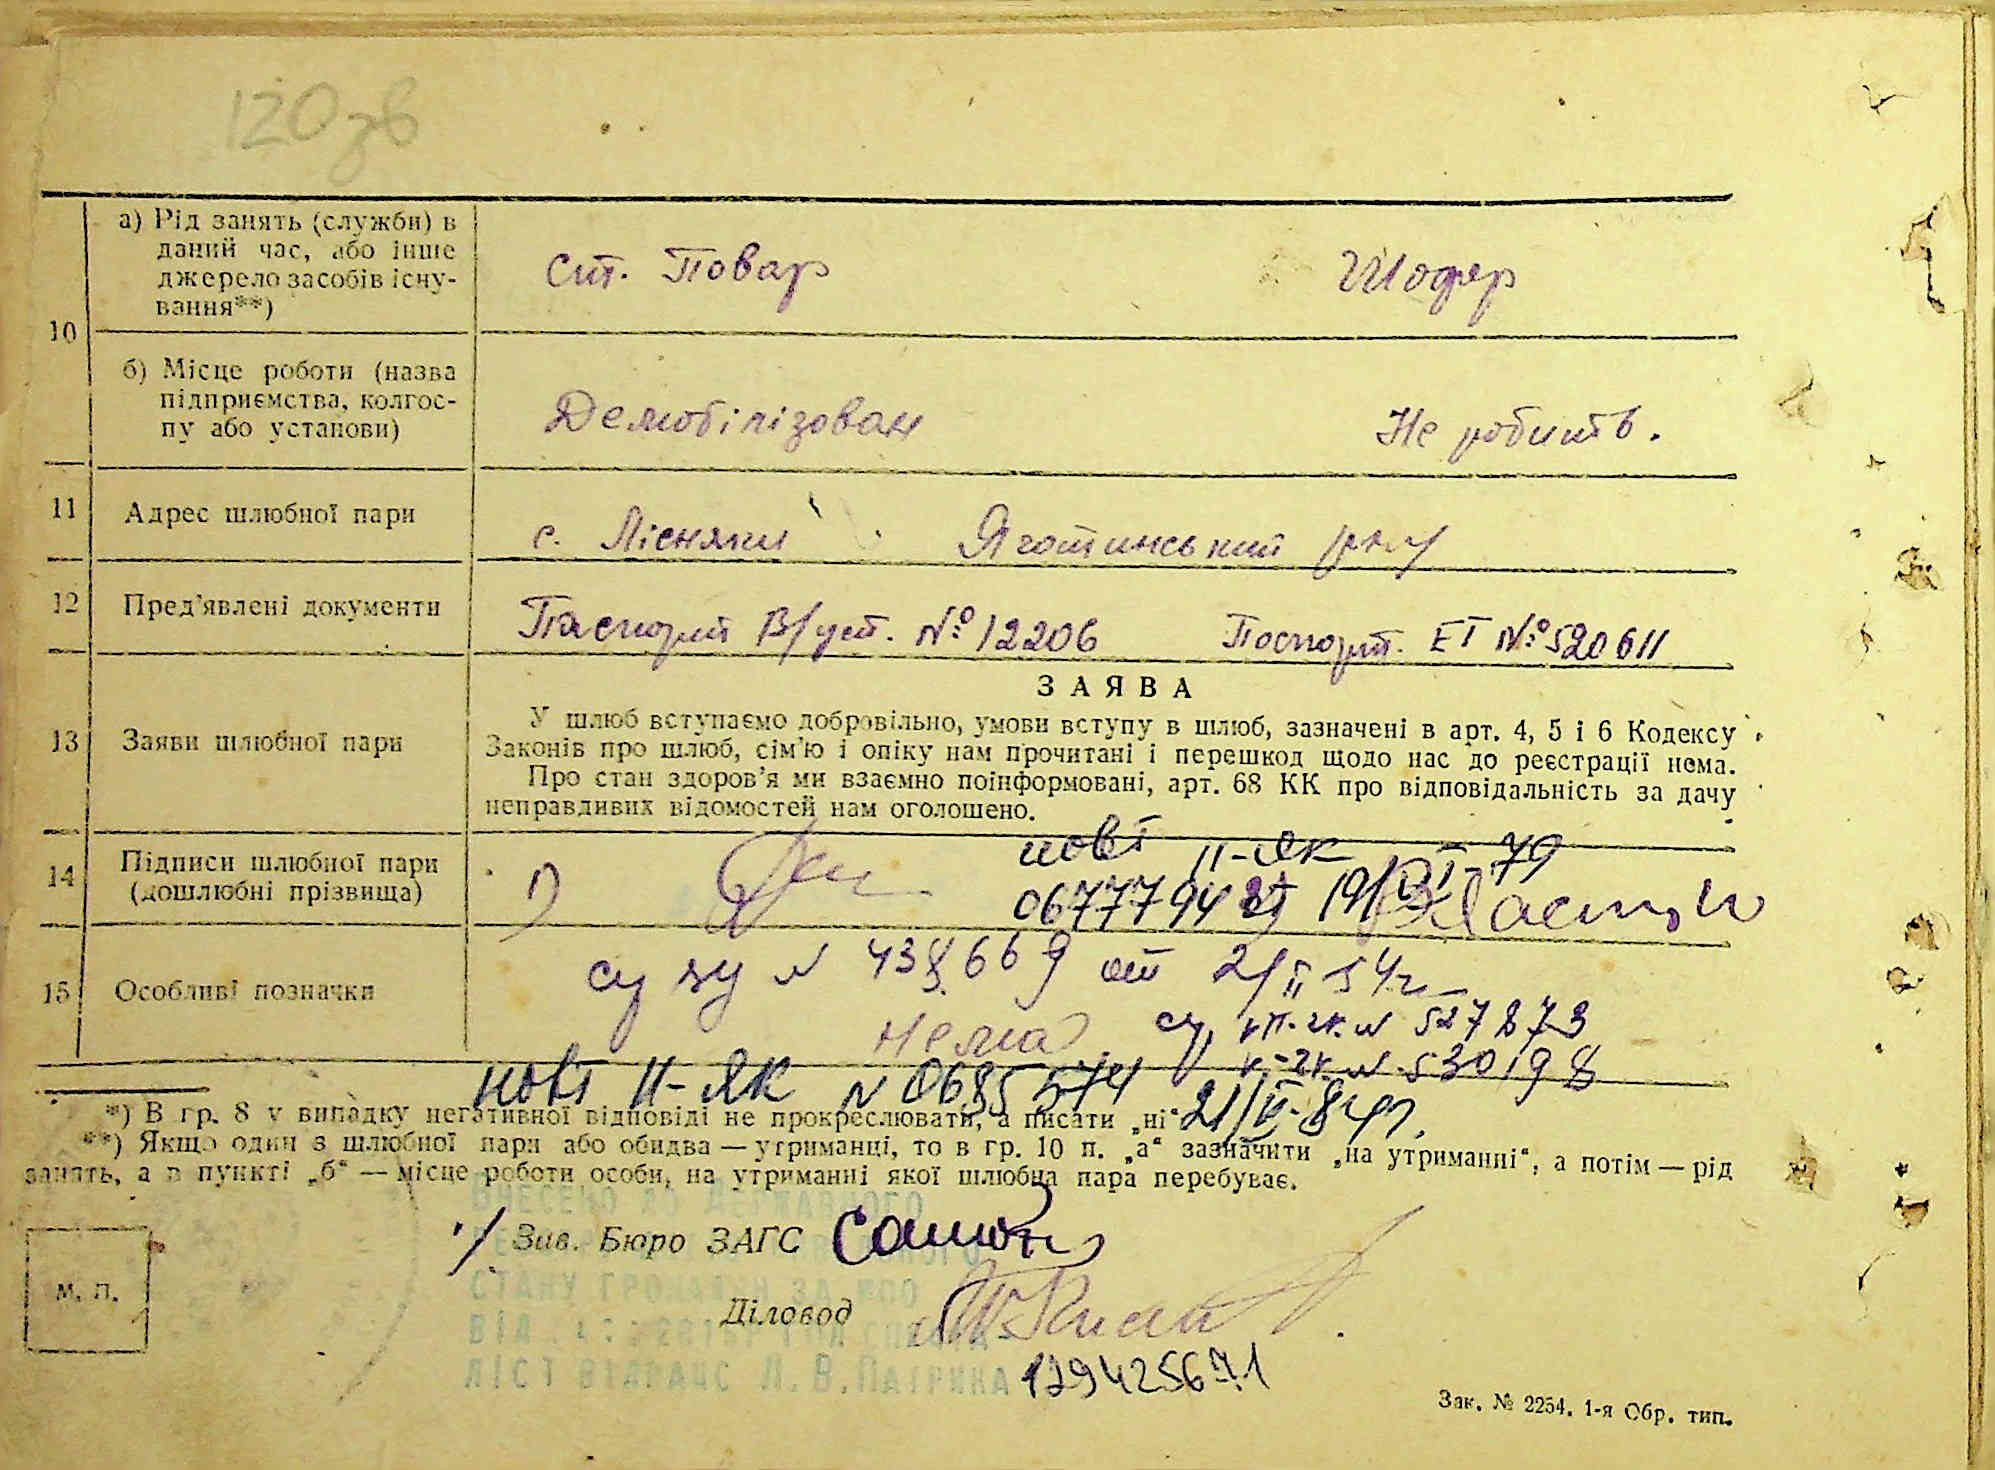 120зв
а) Рід занять (служби) в
даний час, або інше
джерело засобів існу-
вання**)
Ст. Повар
Шофер
10
б) Місце роботи (назва
підприємства, колгос-
пу або установи)
Демобілізован
Не робить.
11 Адрес шлюбної пари с. Лісняки Яготинський р-ну
12 Пред'явлені документи Паспорт В/уст. № 12206 Паспорт. ЕТ № 520611
ЗАЯВА
13 Заяви шлюбної пари
У шлюб вступаємо добровільно, умови вступу в шлюб, зазначені в арт. 4, 5 і 6 Кодексу
Законів про шлюб, сім'ю і опіку нам прочитані і перешкод щодо нас до реєстрації нема.
Про стан здоров'я ми взаємно поінформовані, арт. 68 КК про відповідальність за дачу
неправдивих відомостей нам оголошено.
14 Підписи шлюбної пари
(дошлюбні прізвища)
нові II-ЯК
0677794
15 Особливі позначки
N 438669 от 2/II 54г
Нема
N 527873
N 530198
нові II-ЯК N 0685574
*) В гр. 8 у випадку негативної відповіді не прокреслювати, а писати „ні“
**) Якщо один з шлюбної пари або обидва — утриманці, то в гр. 10 п. „а“ зазначити „на утриманні“, а потім — рід
занять, а в пункті „б“ — місце роботи особи, на утриманні якої шлюбна пара перебуває.
ВНЕСЕНО ДО ДЕРЖАВНОГО
Зав. Бюро ЗАГС
СТАНУ ГРОМАДЯН ЗА
М. П.
Діловод
ВІД
ЛІСТ ВІДРАЦС Л.В.
12942567.1
Зак. № 2254. 1-я Обр. тип.